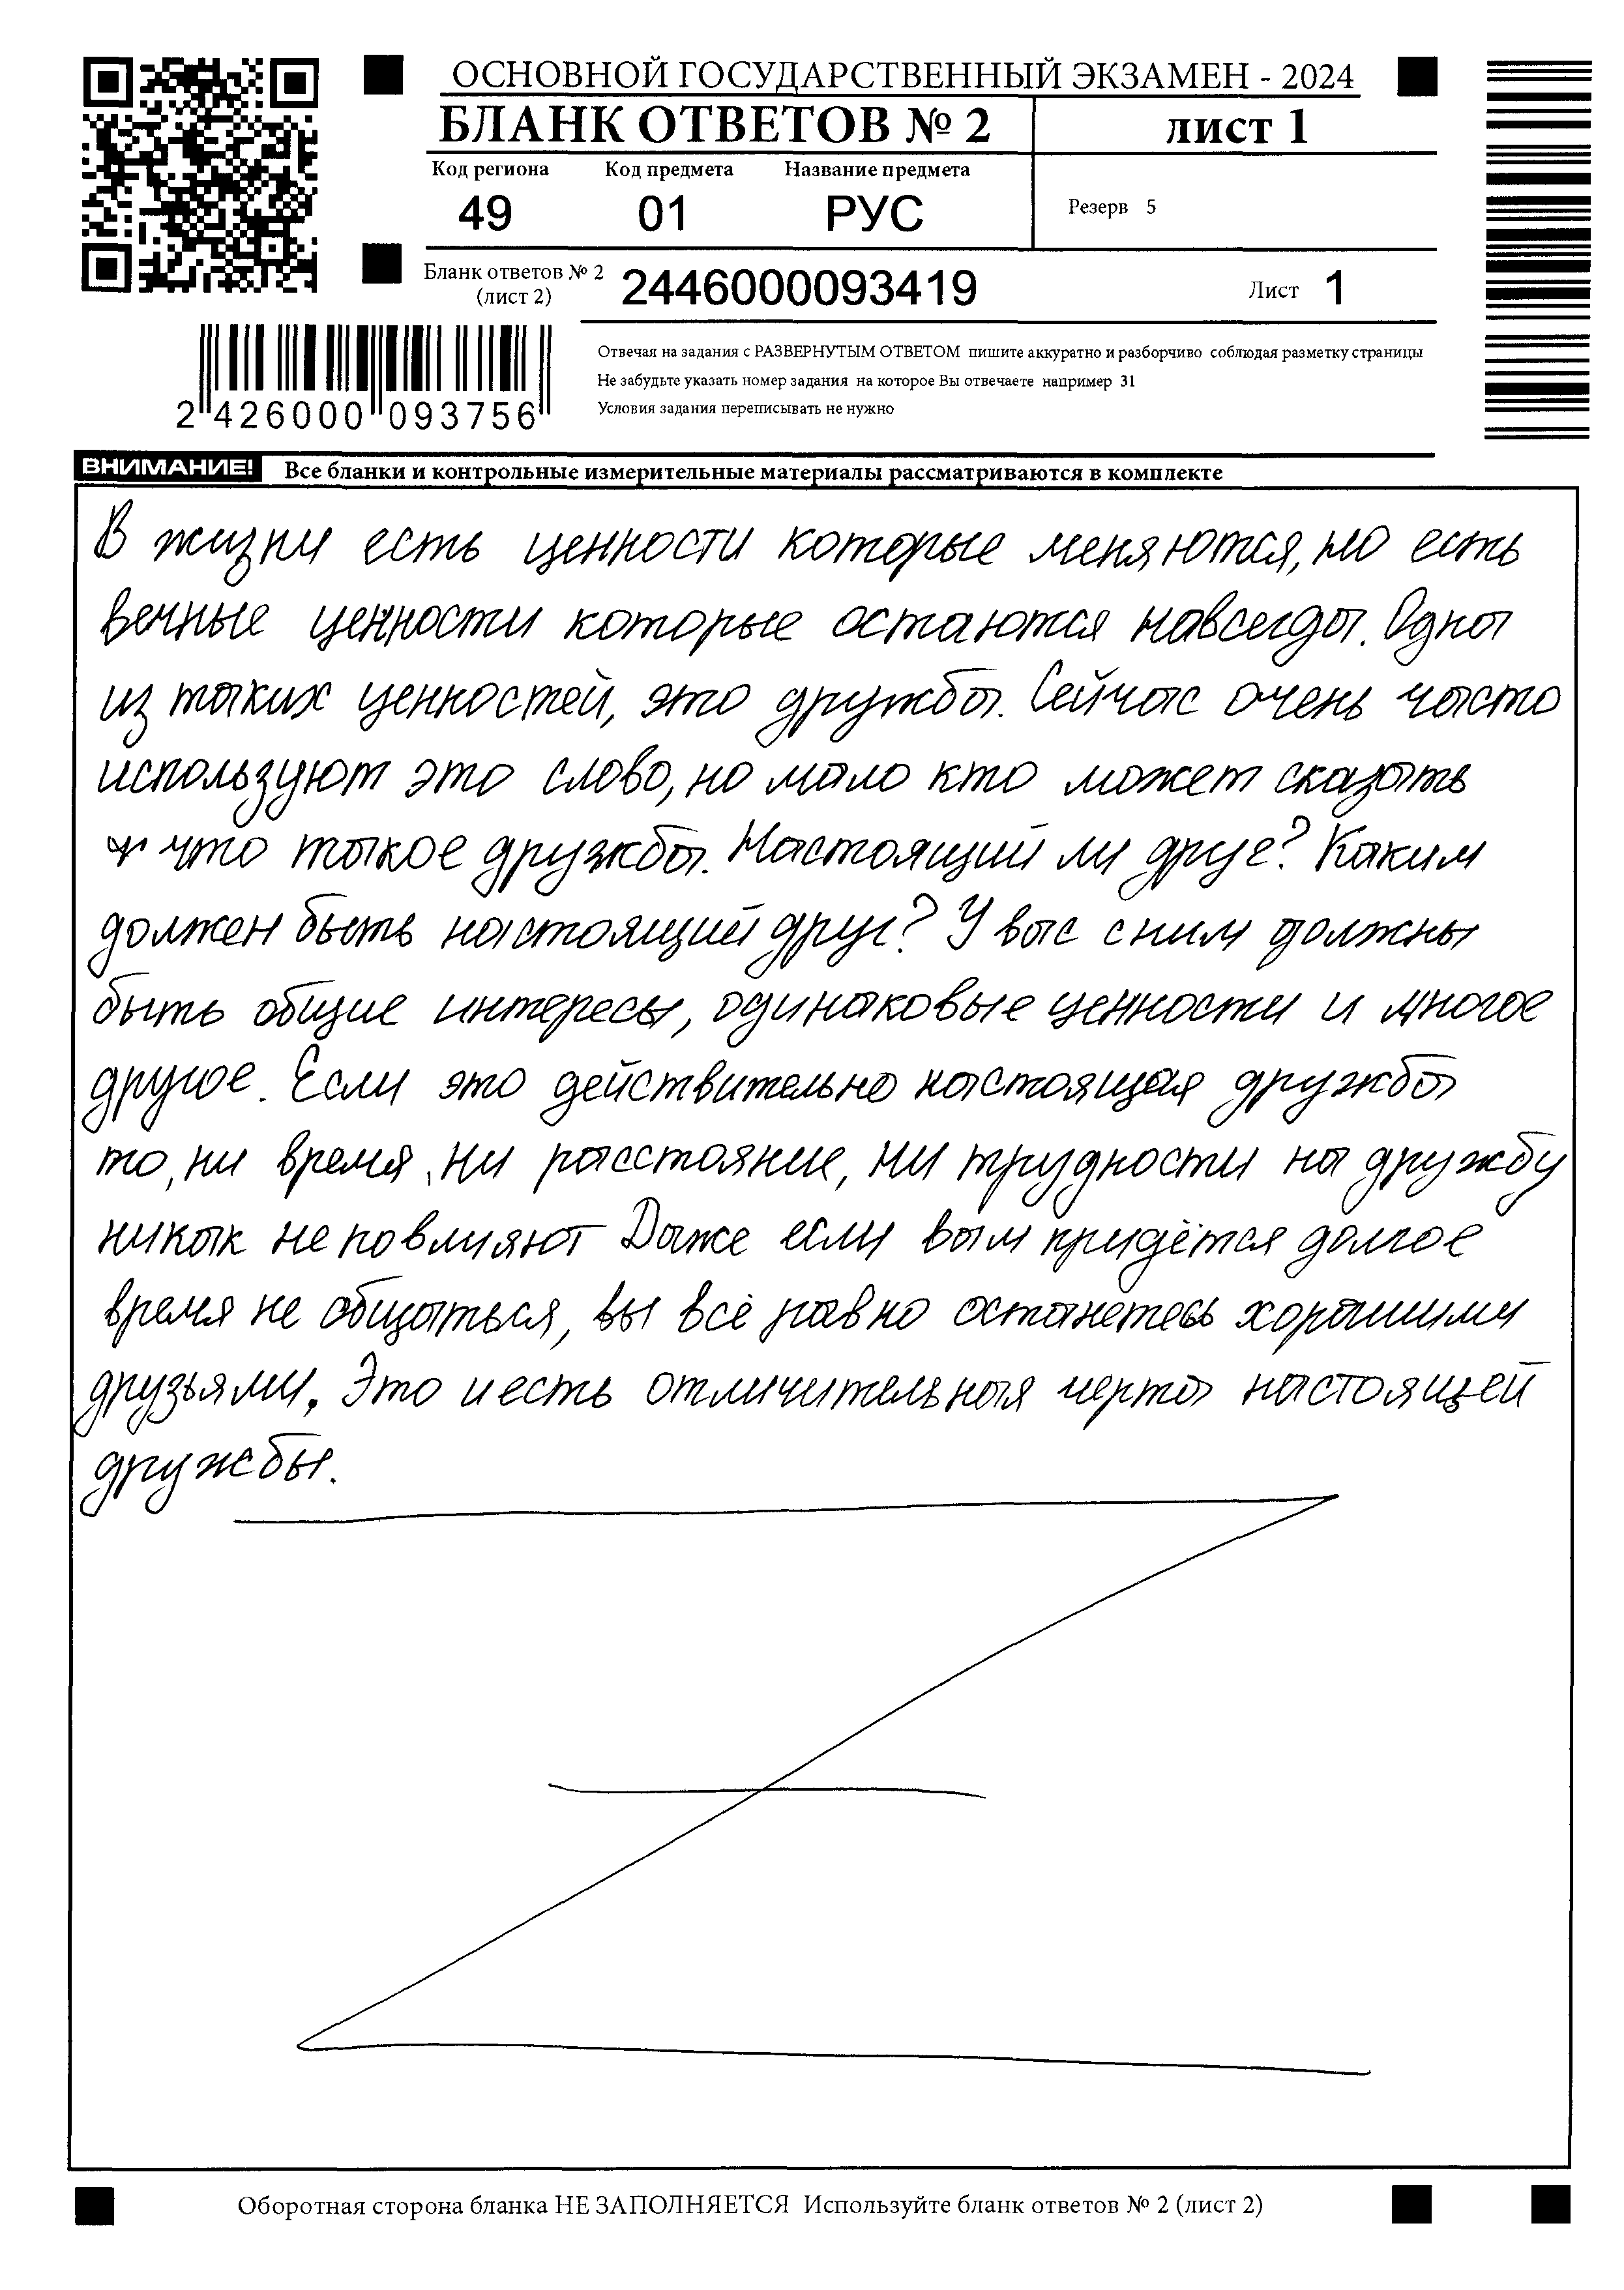 ОСНОВНОЙ ГОСУДАРСТВЕННЫЙ ЭКЗАМЕН - 2024
БЛАНК ОТВЕТОВ № 2
лист 1
Код региона Код предмета Название предмета
49 01 РУС
Резерв 5
Бланк ответов № 2
(лист 2)
2446000093419
Лист 1
2 426000 093756
Отвечая на задания с РАЗВЕРНУТЫМ ОТВЕТОМ пишите аккуратно и разборчиво соблюдая разметку страницы
Не забудьте указать номер задания на которое Вы отвечаете например 31
Условия задания переписывать не нужно
ВНИМАНИЕ! Все бланки и контрольные измерительные материалы рассматриваются в комплекте
В жизни есть ценности которые меняются, но есть
вечные ценности которые остаются навсегда. Одна
из таких ценностей, это дружба. Сейчас очень часто
используют это слово, но мало кто может сказать
что такое дружба. Настоящий ли друг? Каким
должен быть настоящий друг? У вас с ним должны
быть общие интересы, одинаковые ценности и многое
другое. Если это действительно настоящая дружба
то, ни время, ни расстояние, ни трудности на дружбу
никак не повлияют Даже если вам придётся долгое
время не общаться, вы всё равно останетесь хорошими
друзьями. Это и есть отличительная черта настоящей
дружбы.
Оборотная сторона бланка НЕ ЗАПОЛНЯЕТСЯ Используйте бланк ответов № 2 (лист 2)